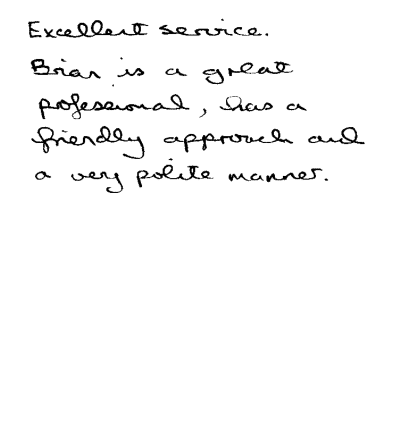 Excellent service.
Brian is a great
professional, has a
friendly approach and
a very polite manner.